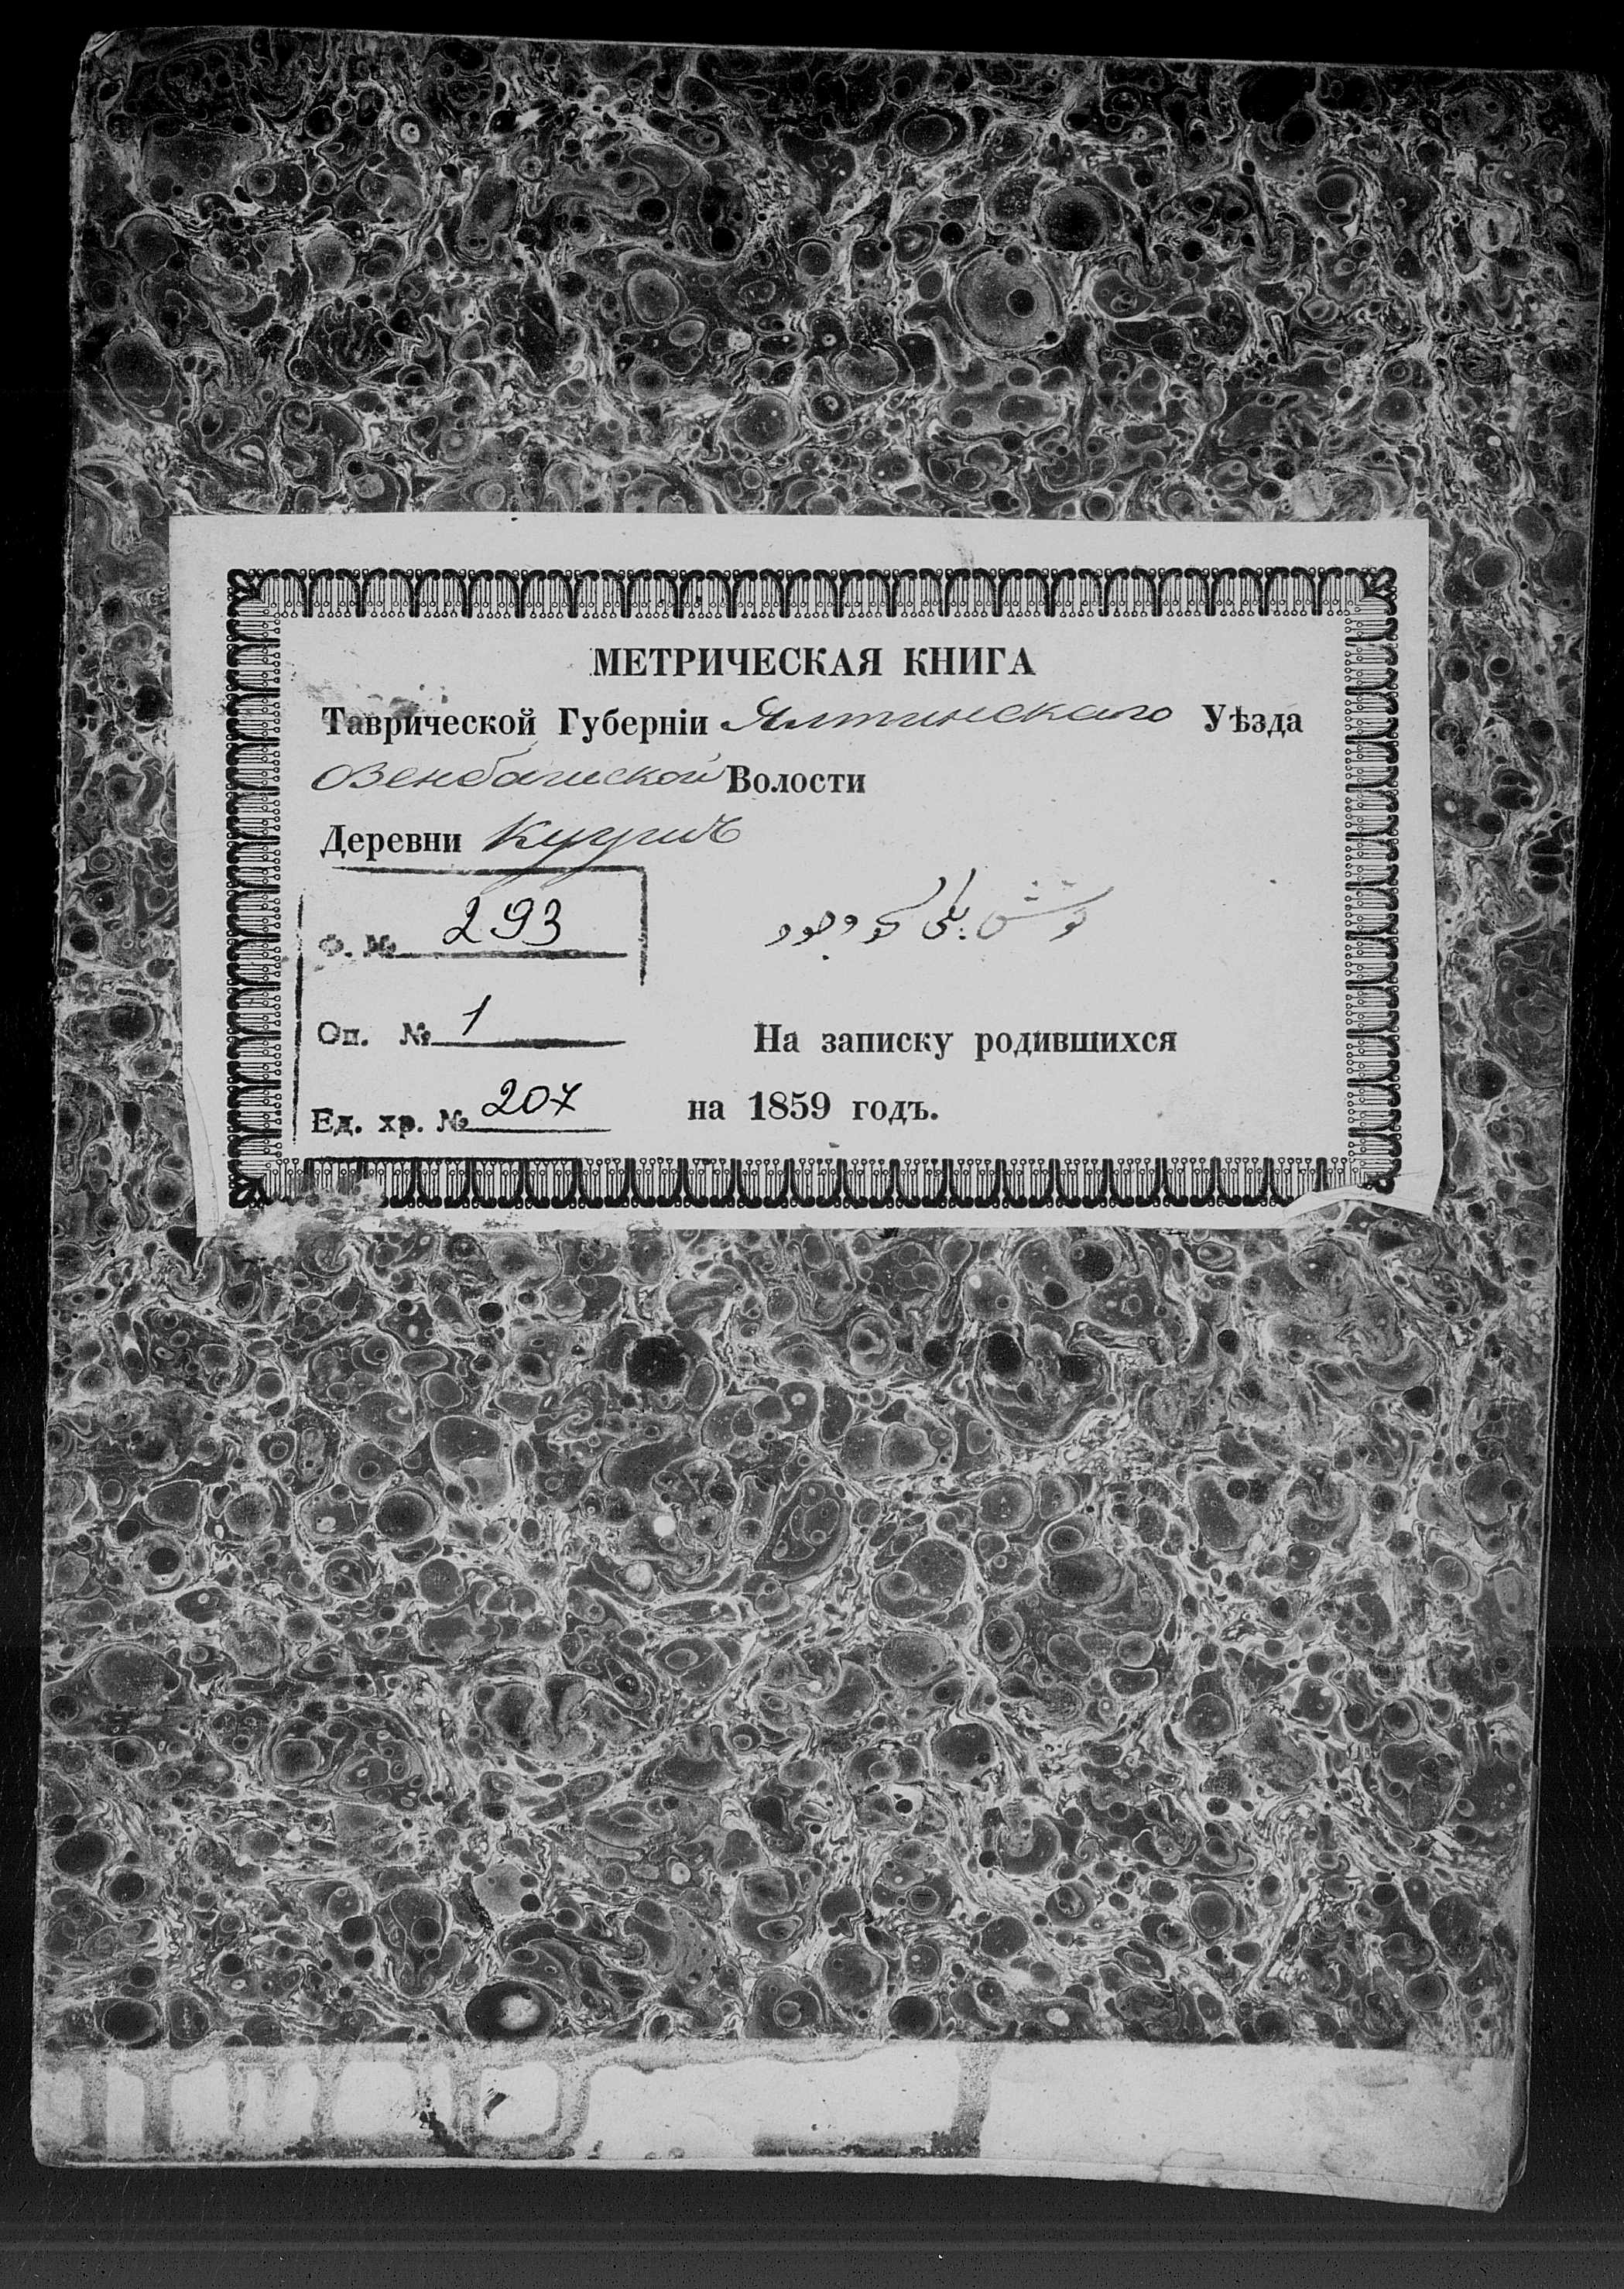 МЕТРИЧЕСКАЯ КНИГА
Таврической Губерніи Ялтинскаго Уѣзда
Озенбашской Волости
Деревни
Ф. № 293
Оп. № 1
На записку родившихся
Ед. хр. № 207
на 1859 годъ.